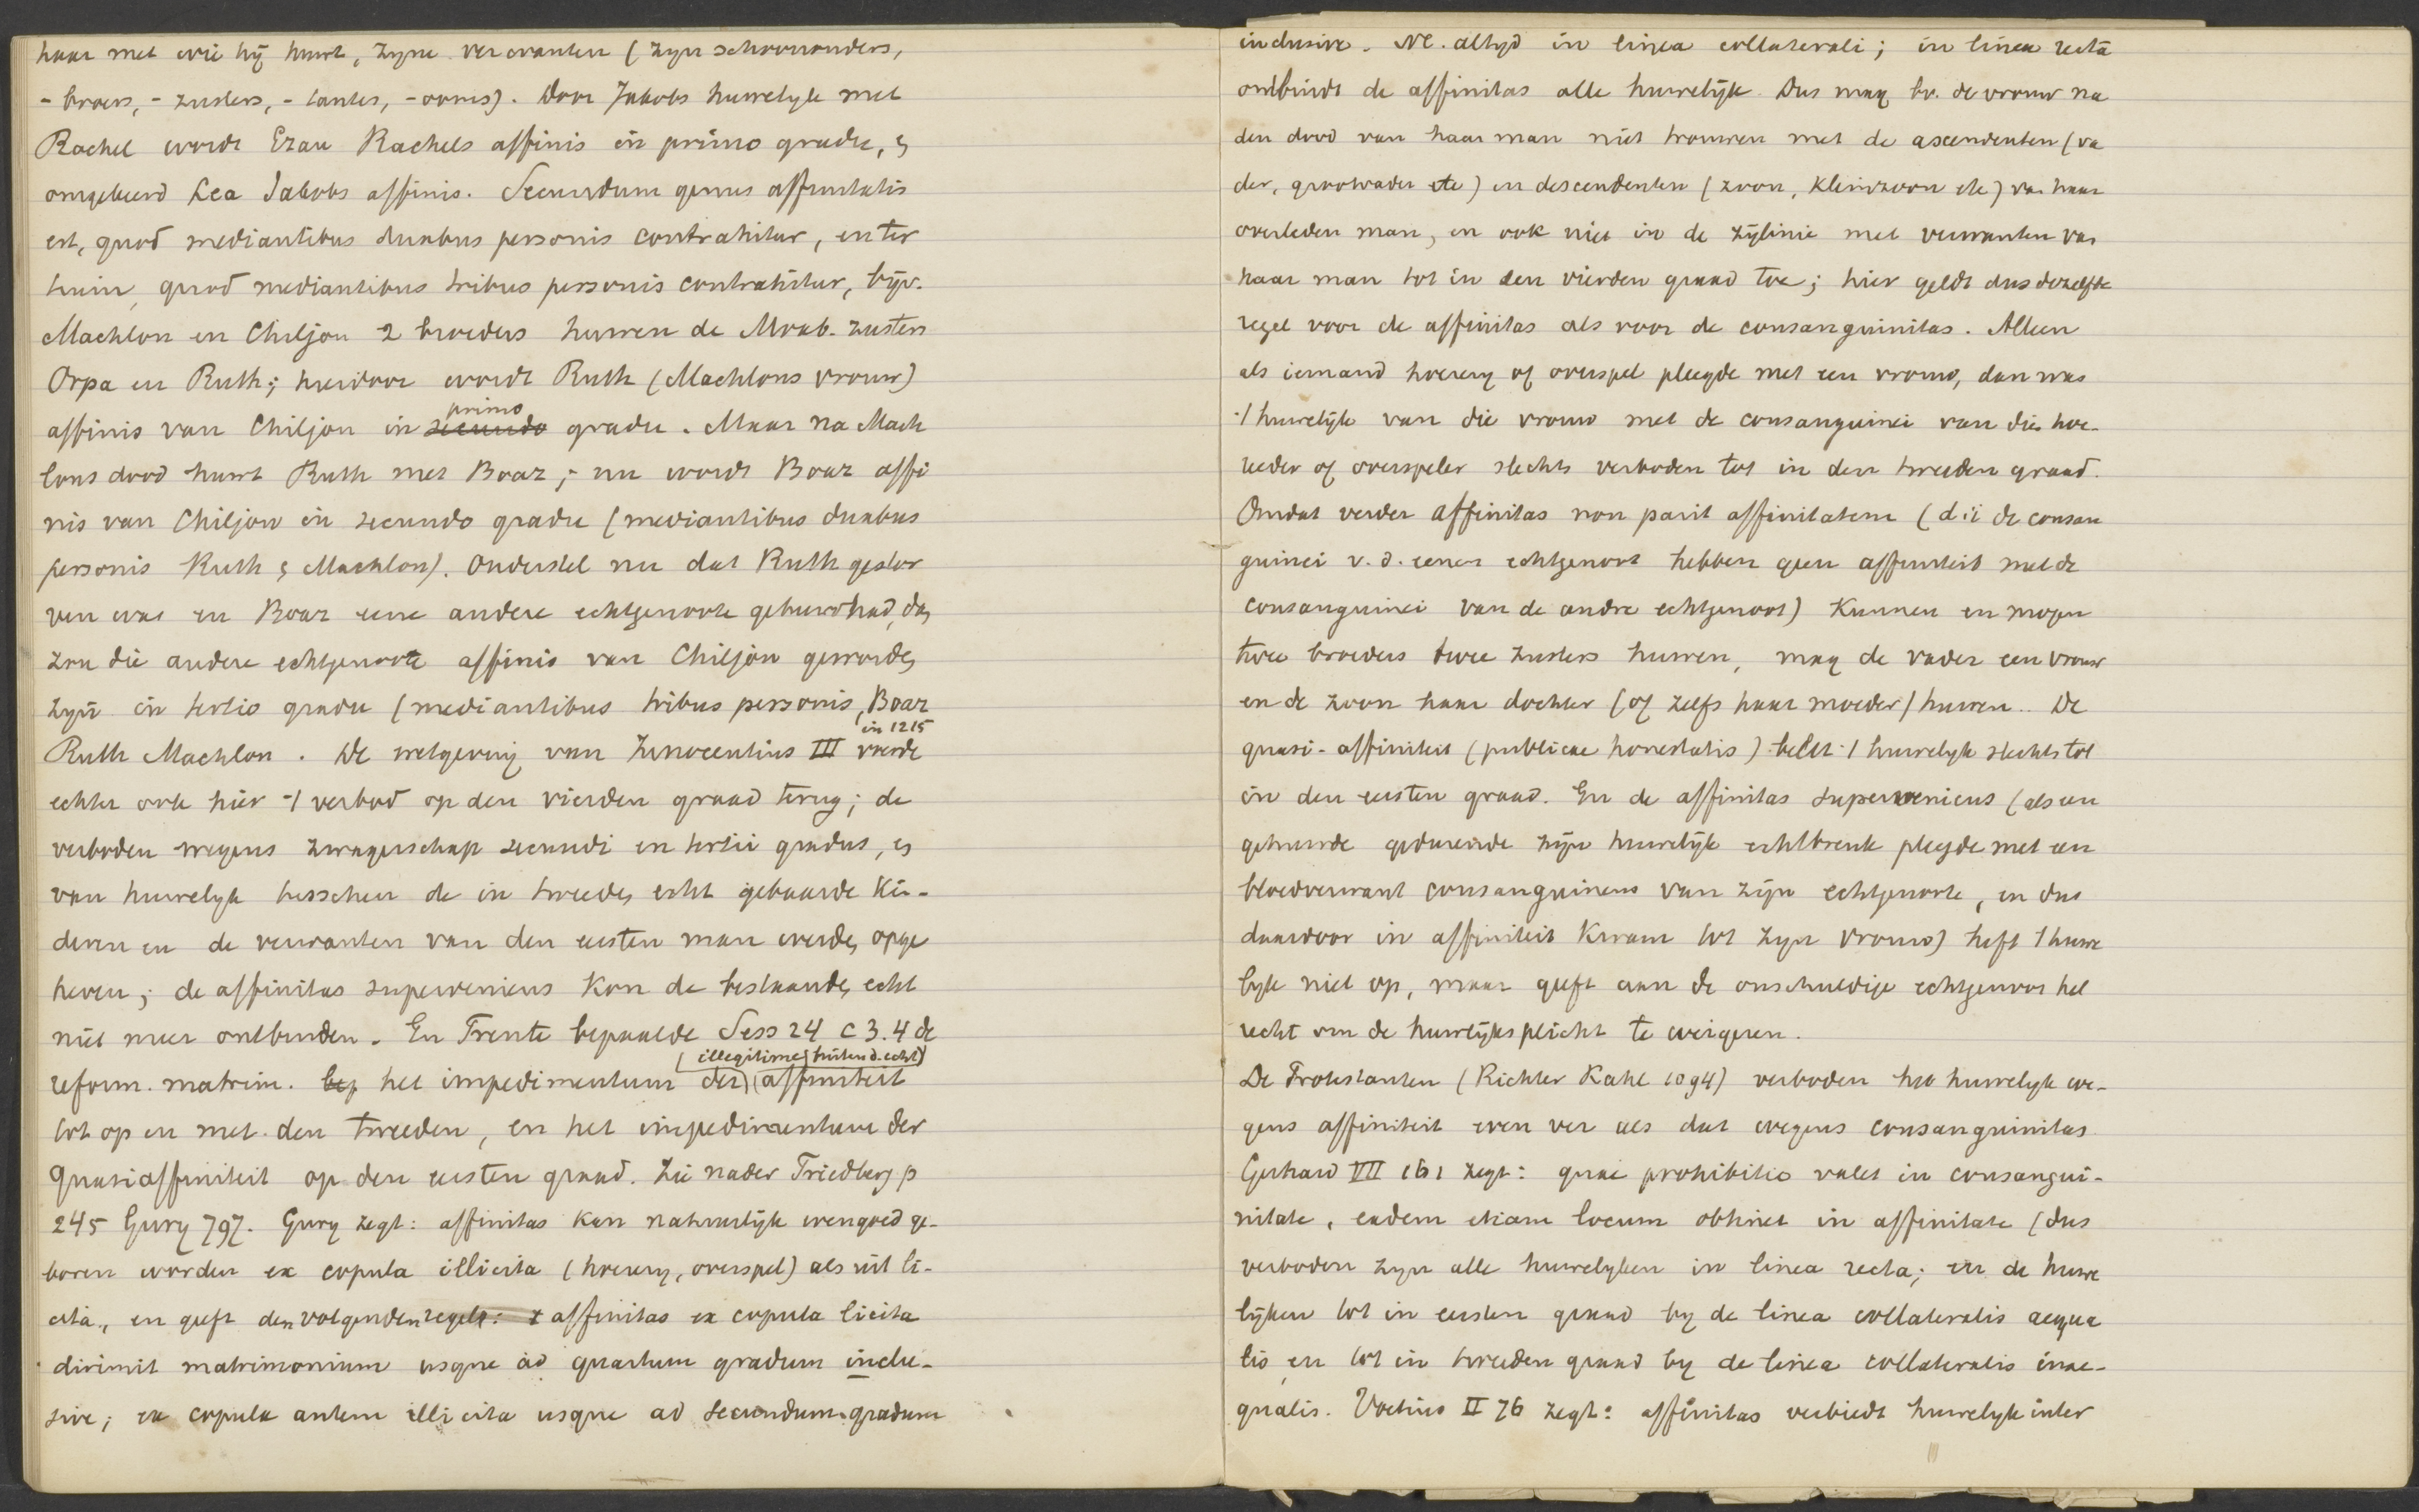 haar met wie hij huwt, zyne verwanten (zyn schoonouders,
- broers, - zusters, - tantes, - ooms). Door Jakobs huwelyk met
Rachel wordt Ezau Rachels affinis in primo gradu, &
omgekeerd Lea Jakobs affinis. Secundum genus affinitatis
est, quod mediantibus duabus personis contrahitur, en ter
tium, quod mediantibus tribus personis contrahitur, bijv.
Machlon en Chiljon 2 broeders huwen de Moab. zusters
Orpa en Ruth; hierdoor wordt Ruth (Machlons vrouw)
affinis van Chiljon in secundo primo gradu. Maar na Mach
lons dood huwt Ruth met Boaz; nu wordt Boaz affi
nis van Chiljon in secundo gradu (mediantibus duabus
personis Ruth & Machlon). Onderstel nu dat Ruth gestor
ven was en Boaz eene andere echtgenoote gehuwd had, dan
zou die andere echtgenoote affinis van Chiljon geworden
zyn in tertio gradu (mediantibus tribus personis, Boaz
Ruth Machlon. De wetgeving van Innocentius III in 1215 voerde
echter ook hier 't verbod op den vierden graad terug; de
verboden wegens zwagerschap secundi en tertii gradus, en
van huwelyk tusschen de in tweeden echt gebaarde kin-
deren en de verwanten van den eersten man werden opge
heven; de affinitas superveniens kon de bestaande echt
niet meer ontbinden. En Trente bepaalde Sess 24 c 3.4 de
reform. matrim. het impedimentum der (illegitime (buiten d. echt) affiniteit
tot op en met den tweeden, en het impedimentum der
quasiaffiniteit op den eersten graad. Zie nader Friedberg p
245 Gury 797. Gury zegt: affinitas kan natuurlijk evengoed ge-
boren worden ex copula illicita (hoerery, overspel) als uit li-
cita, en geeft den volgenden regel: affinitas ex copula licita
dirimit matrimonium usque ad quartum gradum inclu-
sive; ex copula autem illicita usque ad secundum gradum
inclusive. Nl. altyd in linea collaterali; in linea recta
ontbindt de affinitas alle huwelijk. Dus mag bv. de vrouw na
den dood van haar man niet trouwen met de ascendenten (va
der, grootvader etc) en descendenten (zoon, kleinzoon etc) van haar
overleden man, en ook niet in de zijlinie met verwanten van
haar man tot in den vierden graad toe; hier geldt dus dezelfde
regel voor de affinitas als voor de consanguinitas. Alleen
als iemand hoerery of overspel pleegde met een vrouw, dan was
't huwelijk van die vrouw met de consanguinei van dien hoe-
reeder of overspeler slechts verboden tot in den tweeden graad.
Omdat verder affinitas non parit affinitatem (d.i. de consan
guinei v. d. eenen echtgenoot hebben geen affiniteit met de
consanguinei van de andre echtgenoot) kunnen en mogen
twee broeders twee zusters huwen, mag de vader een vrouw
en de zoon haar dochter (of zelfs haar moeder) huwen. De
quasi-affiniteit (publicae honestatis) belet 't huwelyk slechts tot
in den eersten graad. En de affinitas superveniens (als een
gehuwde gedurende zijn huwelijk echtbreuk pleegde met een
bloedverwant consanguineus van zijn echtgenoote, en dus
daardoor in affiniteit kwam tot zyn vrouw) heft 't huwe
lyk niet op, maar geeft aan de onschuldige echtgenoot het
recht om de huwelijksplicht te weigeren.
De Protestanten (Richter Kahl 1094) verboden het huwelyk we-
gens affiniteit even ver als dat wegens consanguinitas.
Gerhard VII 161 zegt: quae prohibitio valet in consangui-
nitate, eadem etiam locum obtinet in affinitate (dus
verboden zyn alle huwelyken in linea recta; en de huwe
lijken tot in eersten graad by de linea collateralis aequa
lis en tot in tweeden graad by de linea collateralis inae-
qualis. Voetius II 76 zegt: affinitas verbiedt huwelyk inter